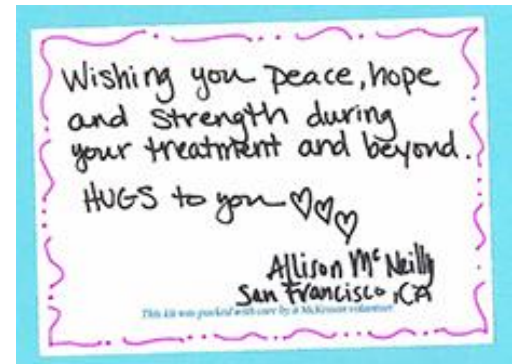 Wishing you peace, hope
and strength during
your treatment and beyond.
HUGS to you ♡♡♡
Allison McNeilly
San Francisco, CA
This kit was packed with care by a McKesson volunteer